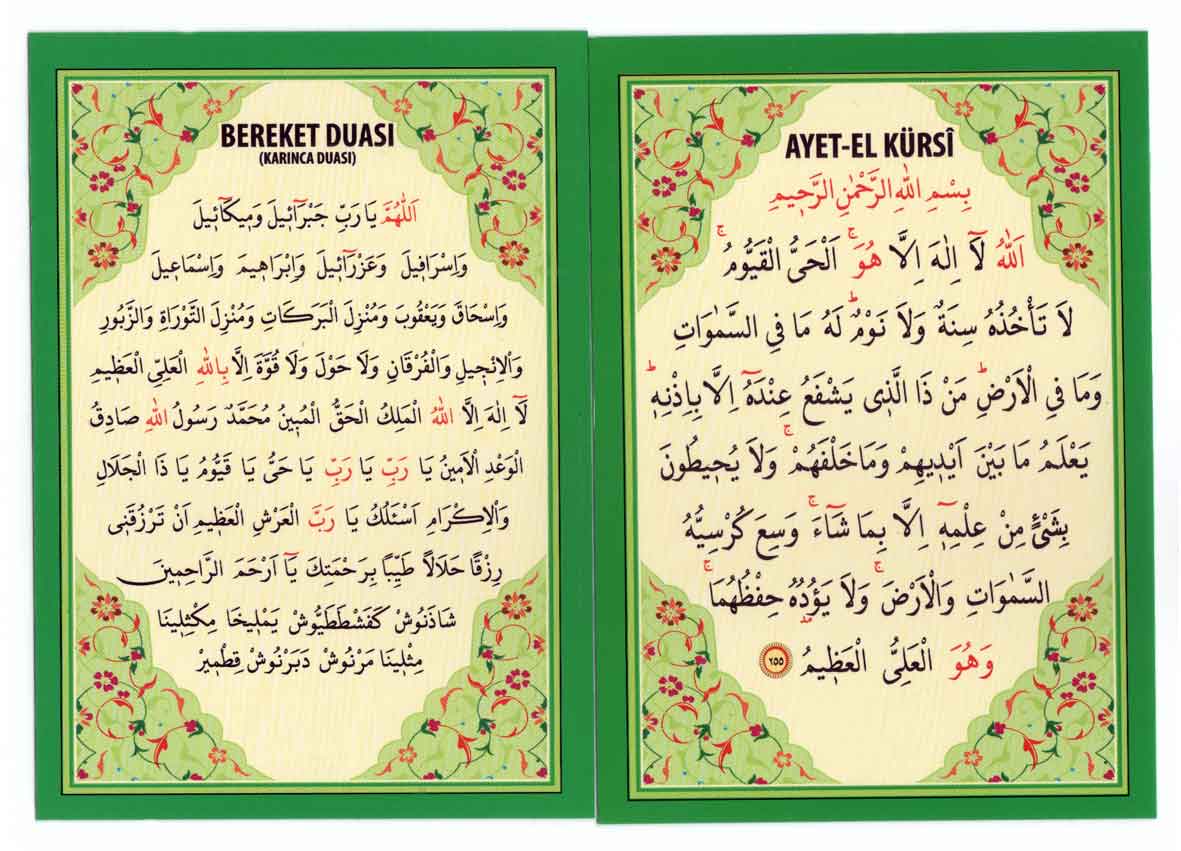 BEREKET DUASI
(KARINCA DUASI)
اَللّٰهُمَّ يَا رَبِّ جَبْرَآئِيلَ وَمِيكَآئِيلَ
وَاِسْرَافِيلَ وَعَزْرَآئِيلَ وَاِبْرَاهِيمَ وَاِسْمَاعِيلَ
وَاِسْحَاقَ وَيَعْقُوبَ وَمُنْزِلَ الْبَرَكَاتِ وَمُنْزِلَ التَّوْرَاةِ وَالزَّبُورِ
وَاْلاِنْجِيلِ وَالْفُرْقَانِ وَلَا حَوْلَ وَلَا قُوَّةَ اِلَّا بِاللّٰهِ الْعَلِىِّ الْعَظِيمِ
لَآ اِلٰهَ اِلَّا اللّٰهُ الْمَلِكُ الْحَقُّ الْمُبِينُ مُحَمَّدٌ رَسُولُ اللّٰهِ صَادِقُ
الْوَعْدِ الْاَمِينُ يَا رَبِّ يَا رَبِّ يَا حَىُّ يَا قَيُّومُ يَا ذَا الْجَلَالِ
وَاْلاِكْرَامِ اَسْئَلُكُ يَا رَبَّ الْعَرْشِ الْعَظِيمِ اَنْ تَرْزُقَنِى
رِزْقًا حَلَالاً طَيِّبًا بِرَحْمَتِكَ يَآ اَرْحَمَ الرَّاحِمِينَ
شَاذَنُوشْ كَفَشْطَطَيُّوشْ يَمْلِيخَا مِكْثِلِينَا
مِثْلِينَا مَرْنُوشْ دَبَرْنُوشْ قِطْمِيرْ
AYET-EL KÜRSÎ
بِسْمِ اللّٰهِ الرَّحْمٰنِ الرَّحِيمِ
اَللّٰهُ لَآ اِلٰهَ اِلَّا هُوَۚ اَلْحَىُّ الْقَيُّومُۚ
لَا تَأْخُذُهُ سِنَةٌ وَلَا نَوْمٌۜ لَهُ مَا فِي السَّمٰوَاتِ
وَمَا فِي الْاَرْضِۜ مَنْ ذَا الَّذِى يَشْفَعُ عِنْدَهُٓ اِلَّا بِاِذْنِهِۜ
يَعْلَمُ مَا بَيْنَ اَيْدِيهِمْ وَمَا خَلْفَهُمْۚ وَلَا يُحِيطُونَ
بِشَىْءٍ مِنْ عِلْمِهِٓ اِلَّا بِمَا شَآءَۚ وَسِعَ كُرْسِيُّهُ
السَّمٰوَاتِ وَالْاَرْضَۚ وَلَا يَؤُدُهُ حِفْظُهُمَاۚ
وَهُوَ الْعَلِىُّ الْعَظِيمُ ٢٥٥